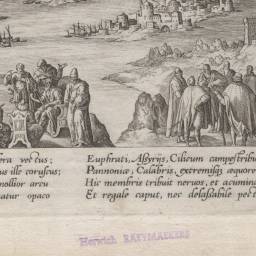 era vectus;
us ille coruscus;
mollior arcu
atur opaco
Euphrati, Assyrijs, Cilicum campestribu
Pannoniæ, Calabris, extremisq æquore
Hic membris tribuit nervos, et acumin
Et regale caput, nec delassabile pect
RATYMAEKERS